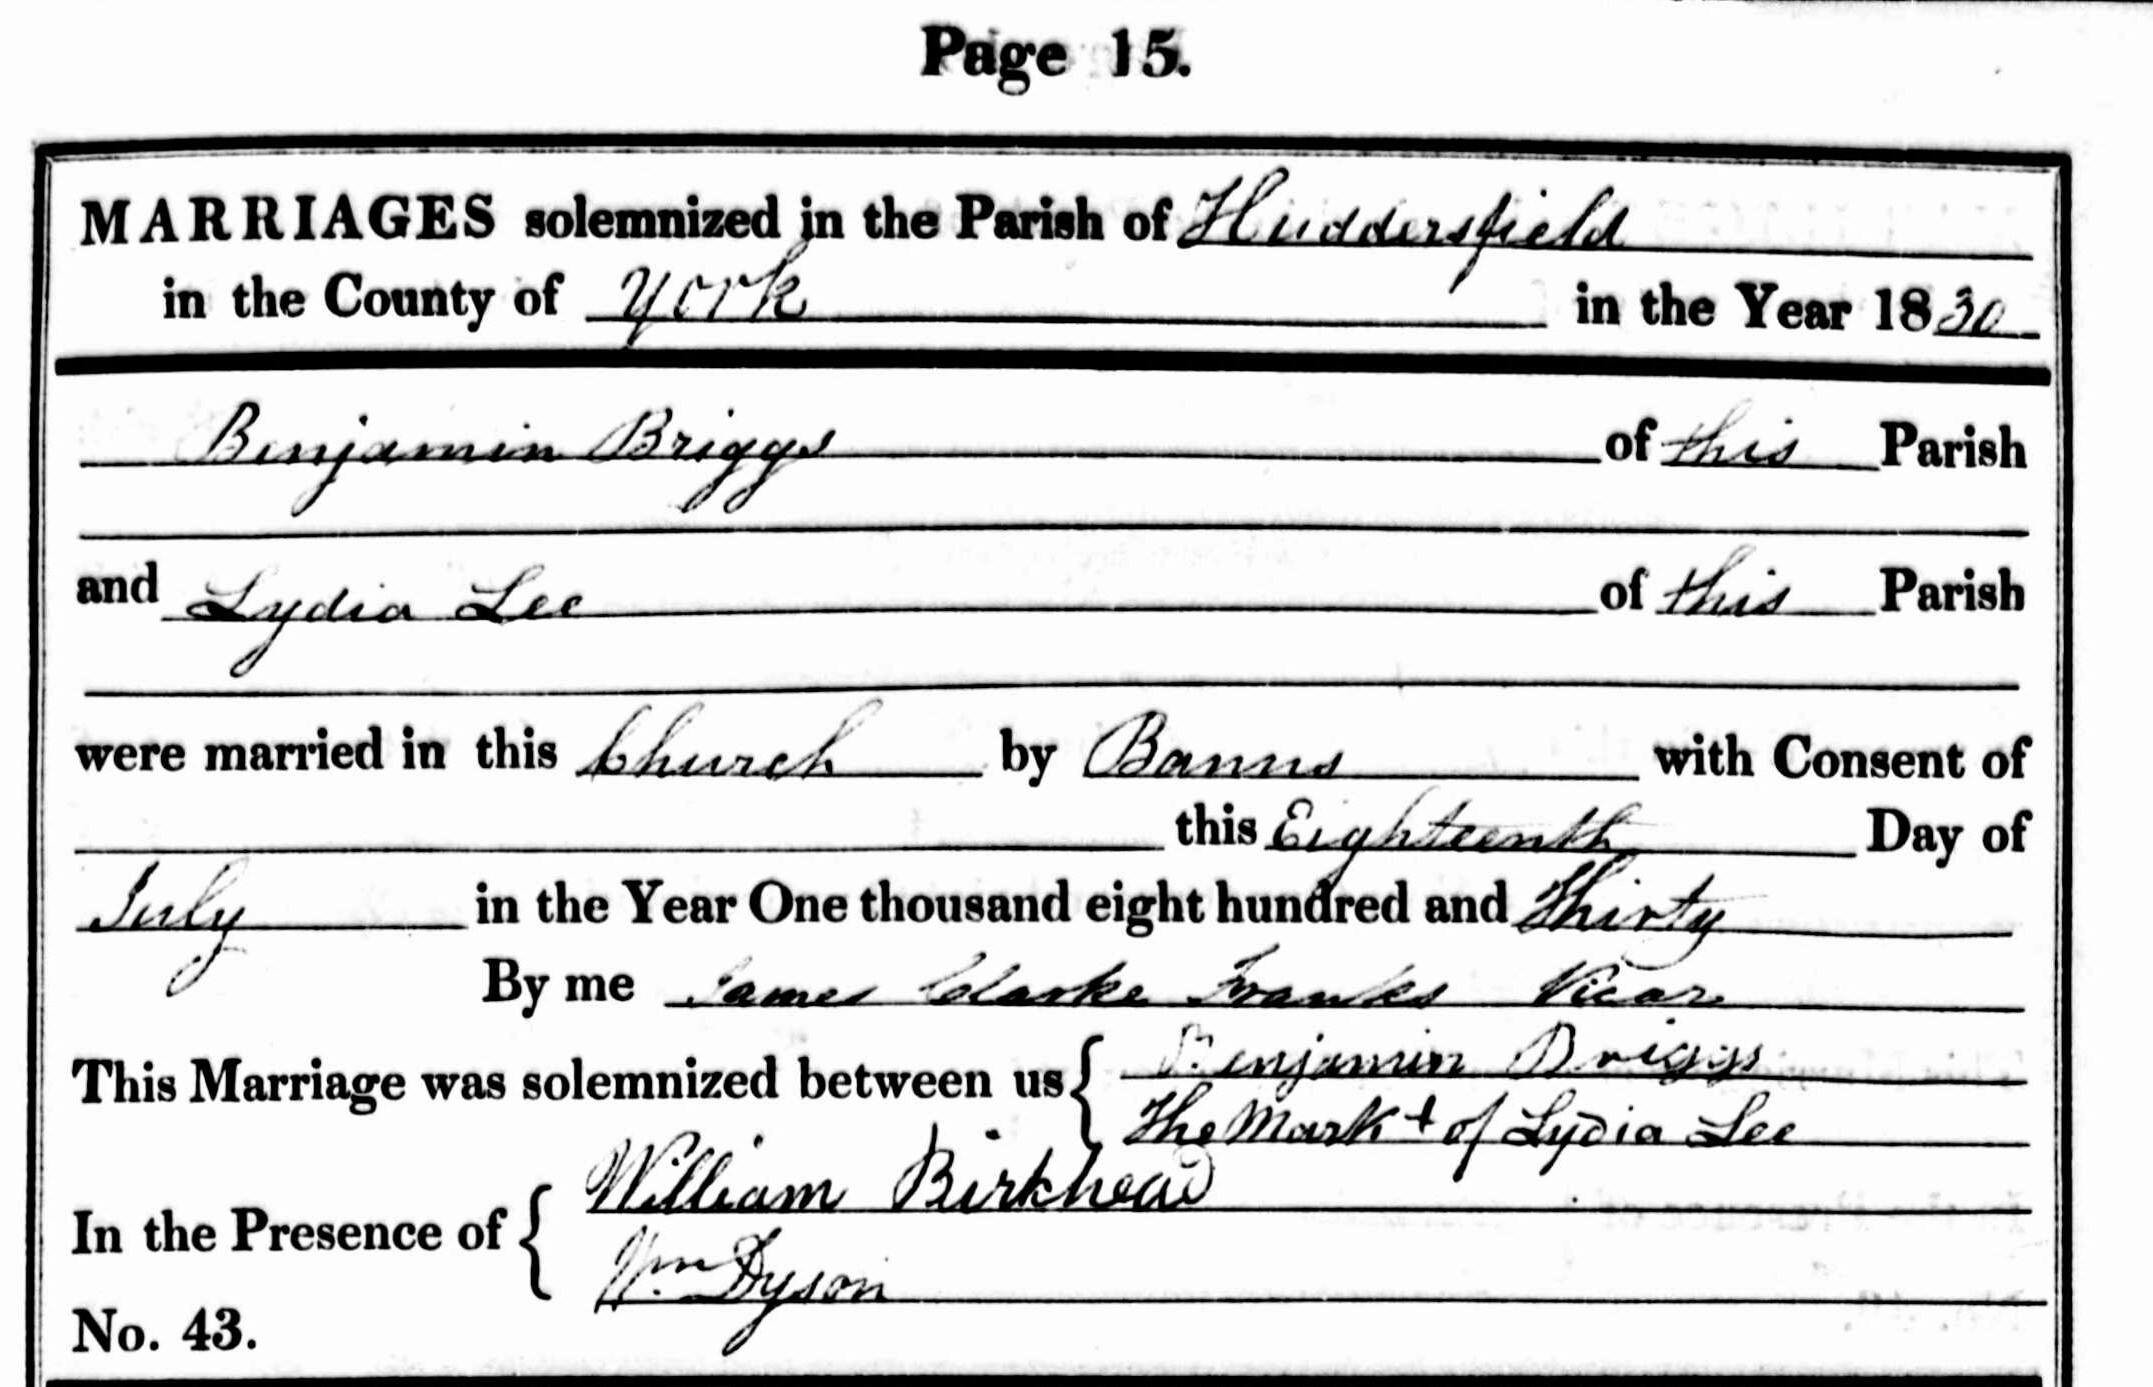 Page 15.
MARRIAGES solemnized in the Parish of Huddersfield
in the County of York in the Year 1830
Benjamin Briggs of this Parish
and Lydia Lee of this Parish
were married in this Church by Banns with Consent of
this Eighteenth Day of
July in the Year One thousand eight hundred and Thirty
By me James Clarke Franks Vicar
This Marriage was solemnized between us { Benjamin Briggs
The Mark + of Lydia Lee
In the Presence of { William Birkhead
Wm Dyson
No. 43.